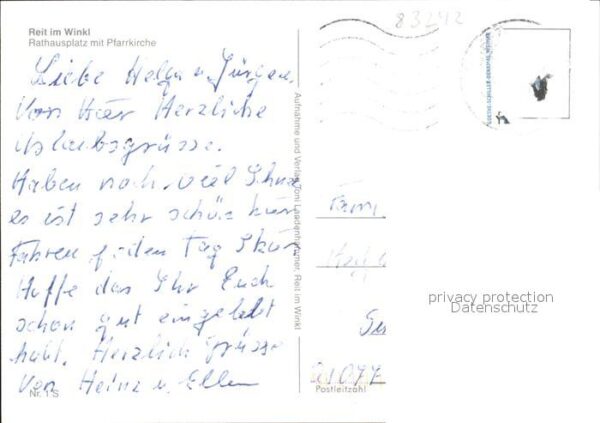 83242
Reit im Winkl
Rathausplatz mit Pfarrkirche
Liebe Helga u. Jürgen.
Von Hier Herzliche
Urlaubsgrüsse.
Haben noch viel Schnee
es ist sehr schön hier
Fahren jeden Tag Ski
Hoffe das Ihr Euch
schon gut eingelebt
habt. Herzlich grüsse
Von Heinz u. Ellen
Nr. 1 S
Aufnahme und Verlag Toni
Reit im Winkl
Fam.
privacy protection
Datenschutz
Postleitzahl